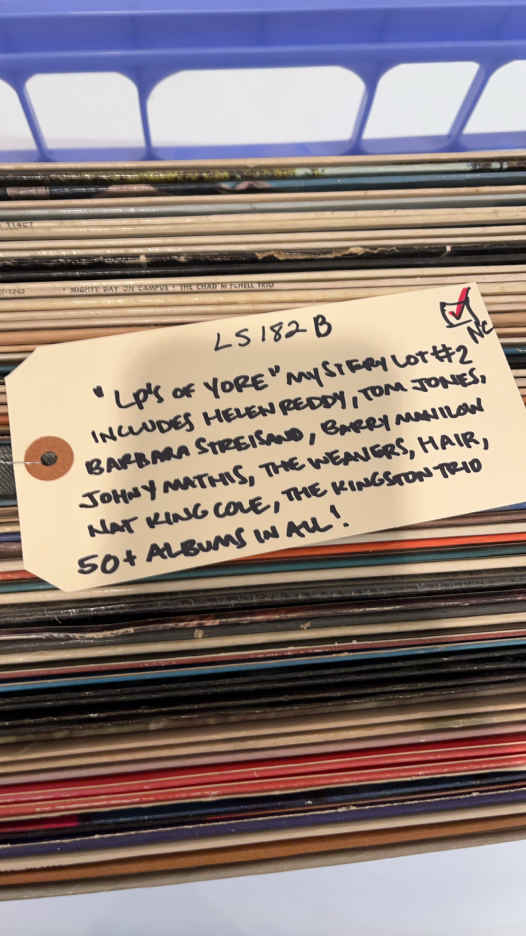 "MIGHTY DAY ON CAMPUS" • THE CHAD MITCHELL TRIO
LS182B
NC
"LP'S OF YORE" MYSTERY LOT #2
INCLUDES HELEN REDDY, TOM JONES,
BARBARA STREISAND, BARRY MANILOW
JOHNY MATHIS, THE WEAVERS, HAIR,
NAT KING COLE, THE KINGSTON TRIO
50+ ALBUMS IN ALL!